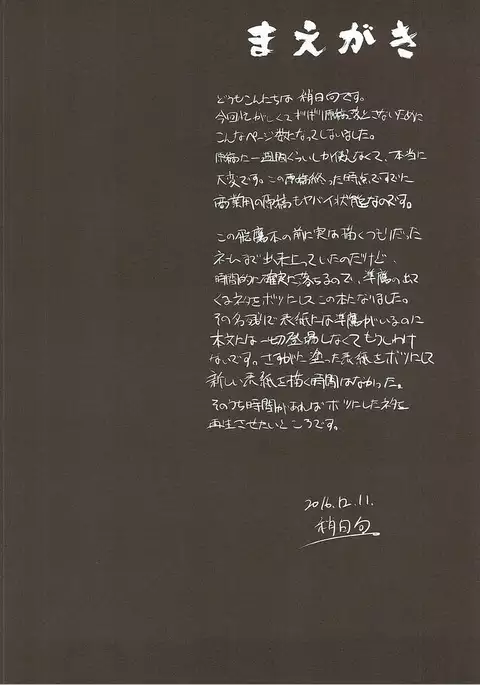 まえがき
どうもこんにちは 梢日向です。
今回忙がしくてギリギリ原稿落とさないために
こんなページ数になってしまいました。
原稿に一週間くらいしか使えなくて、本当に
大変です。この原稿終った時点ですでに
商業用の原稿もヤバイ状態なのです。
この飛鷹本の前に実は描くつもりだった
ネームまで出来上っていたのだけど、
時間的に確実に落ちるので、準鷹の出て
くるネタをボツにしてこの本になりました。
その名残で表紙には準鷹がいるのに
本文には一切登場しなくてもうしわけ
ないです。さすがに塗った表紙をボツにして
新しい表紙を描く時間はなかった。
そのうち時間があればボツにしたネタを
再生させたいところです。
2016.12.11.
梢日向